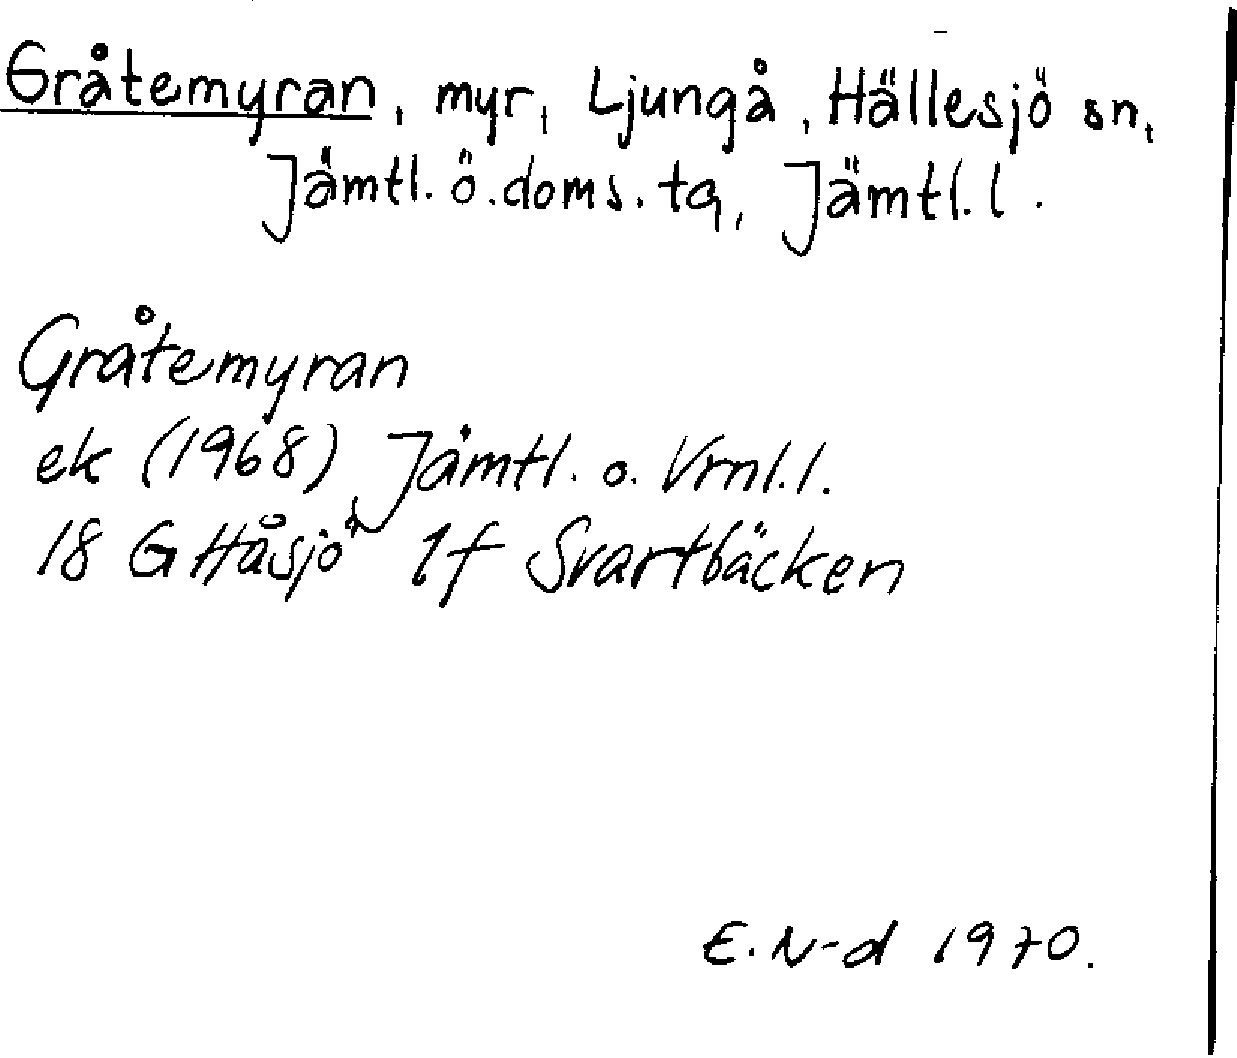 Gråtemyran, myr, Ljungå, Hällesjö sn,
Jämtl. ö. doms. tg, Jämtl. l.
Gråtemyran
ek (1968) Jämtl. o. Vrnl. l.
18 G Håsjö 1f Svartbäcken
E. N-d 1970.